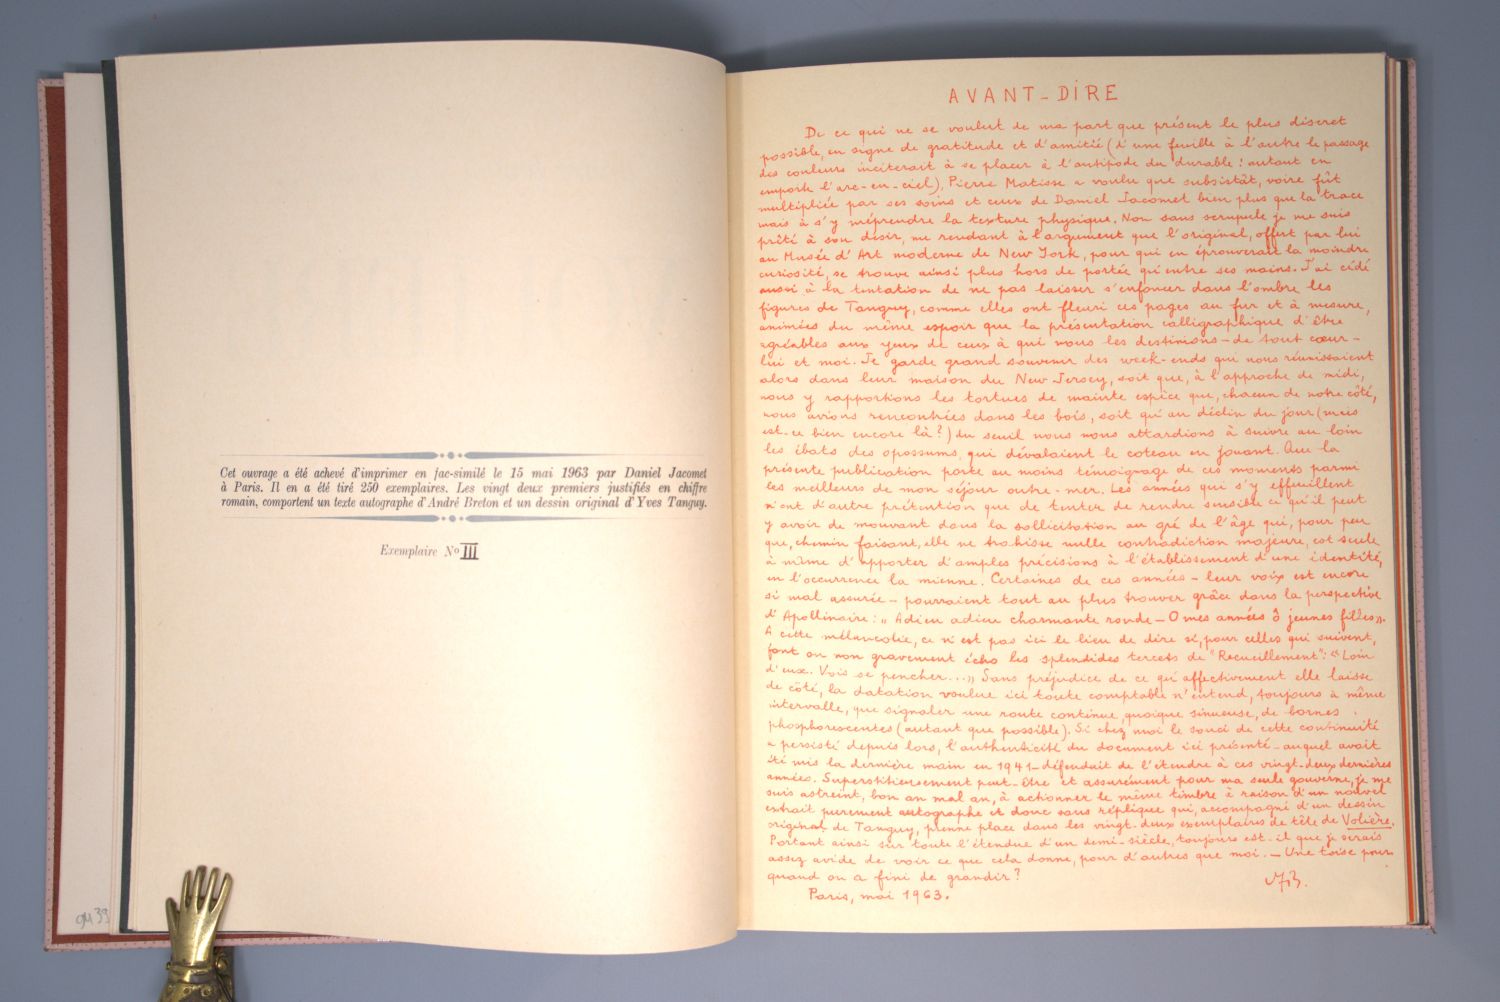 Cet ouvrage a été achevé d'imprimer en fac-similé le 15 mai 1963 par Daniel Jacomet
à Paris. Il en a été tiré 250 exemplaires. Les vingt deux premiers justifiés en chiffre
romain, comportent un texte autographe d'André Breton et un dessin original d'Yves Tanguy.
Exemplaire No III
AVANT-DIRE
De ce qui ne se voulut de ma part que présent le plus discret
possible, en signe de gratitude et d'amitié (d'une feuille à l'autre le passage
des couleurs inciterait à se placer à l'antipode du durable : autant en
emporte l'arc-en-ciel), Pierre Matisse a voulu que subsistât, voire fût
multipliée par ses soins et ceux de Daniel Jacomet bien plus que la trace
mais à s'y méprendre la texture physique. Non sans scrupule je me suis
prêté à son désir, me rendant à l'argument que l'original, offert par lui
au Musée d'Art moderne de New York, pour qui en éprouverait la moindre
curiosité, se trouve ainsi plus hors de portée qu'entre ses mains. J'ai cédé
aussi à la tentation de ne pas laisser s'enfoncer dans l'ombre les
figures de Tanguy, comme elles ont fleuri ces pages au fur et à mesure,
animées du même espoir que la présentation calligraphique d'être
agréables aux yeux de ceux à qui nous les destinions - de tout cœur -
lui et moi. Je garde grand souvenir des week-ends qui nous réunissaient
alors dans leur maison du New Jersey, soit que, à l'approche de midi,
nous y rapportions les tortues de mainte espèce que, chacun de notre côté,
nous avions rencontrées dans les bois, soit qu'au déclin du jour (mais
est-ce bien encore là ?) du seuil nous nous attardions à suivre au loin
les ébats des opossums, qui dévalaient le coteau en jouant. Que la
présente publication porte au moins témoignage de ces moments parmi
les meilleurs de mon séjour outre-mer. Les années qui s'y effeuillent
n'ont d'autre prétention que de tenter de rendre sensible ce qu'il peut
y avoir de mouvant dans la sollicitation au gré de l'âge qui, pour peu
que, chemin faisant, elle ne trahisse nulle contradiction majeure, est seule
à même d'apporter d'amples précisions à l'établissement d'une identité,
en l'occurrence la mienne. Certaines de ces années - leur voix est encore
si mal assurée - pourraient tout au plus trouver grâce dans la perspective
d'Apollinaire : „ Adieu adieu charmante ronde - O mes années ô jeunes filles ".
A cette mélancolie, ce n'est pas ici le lieu de dire si, pour celles qui suivent,
font ou non gravement écho les splendides tercets de "Recueillement" : « Loin
d'eux. Vois se pencher... » Sans préjudice de ce qu'affectivement elle laisse
de côté, la datation voulue ici toute comptable n'entend, toujours à même
intervalle, que signaler une route continue, quoique sinueuse, de bornes
phosphorescentes (autant que possible). Si chez moi le souci de cette continuité
a persisté depuis lors, l'authenticité du document ici présenté - auquel avait
été mis la dernière main en 1941 - défendait de l'étendre à ces vingt-deux dernières
années. Superstitieusement peut-être et assurément pour ma seule gouverne, je me
suis astreint, bon an mal an, à actionner le même timbre à raison d'un nouvel
extrait purement autographe et donc sans réplique qui, accompagné d'un dessin
original de Tanguy, prenne place dans les vingt-deux exemplaires de tête de Volière.
Portant ainsi sur toute l'étendue d'un demi-siècle, toujours est-il que je serais
assez avide de voir ce que cela donne, pour d'autres que moi. - Une toise pour
quand on a fini de grandir ?
AB.
Paris, mai 1963.